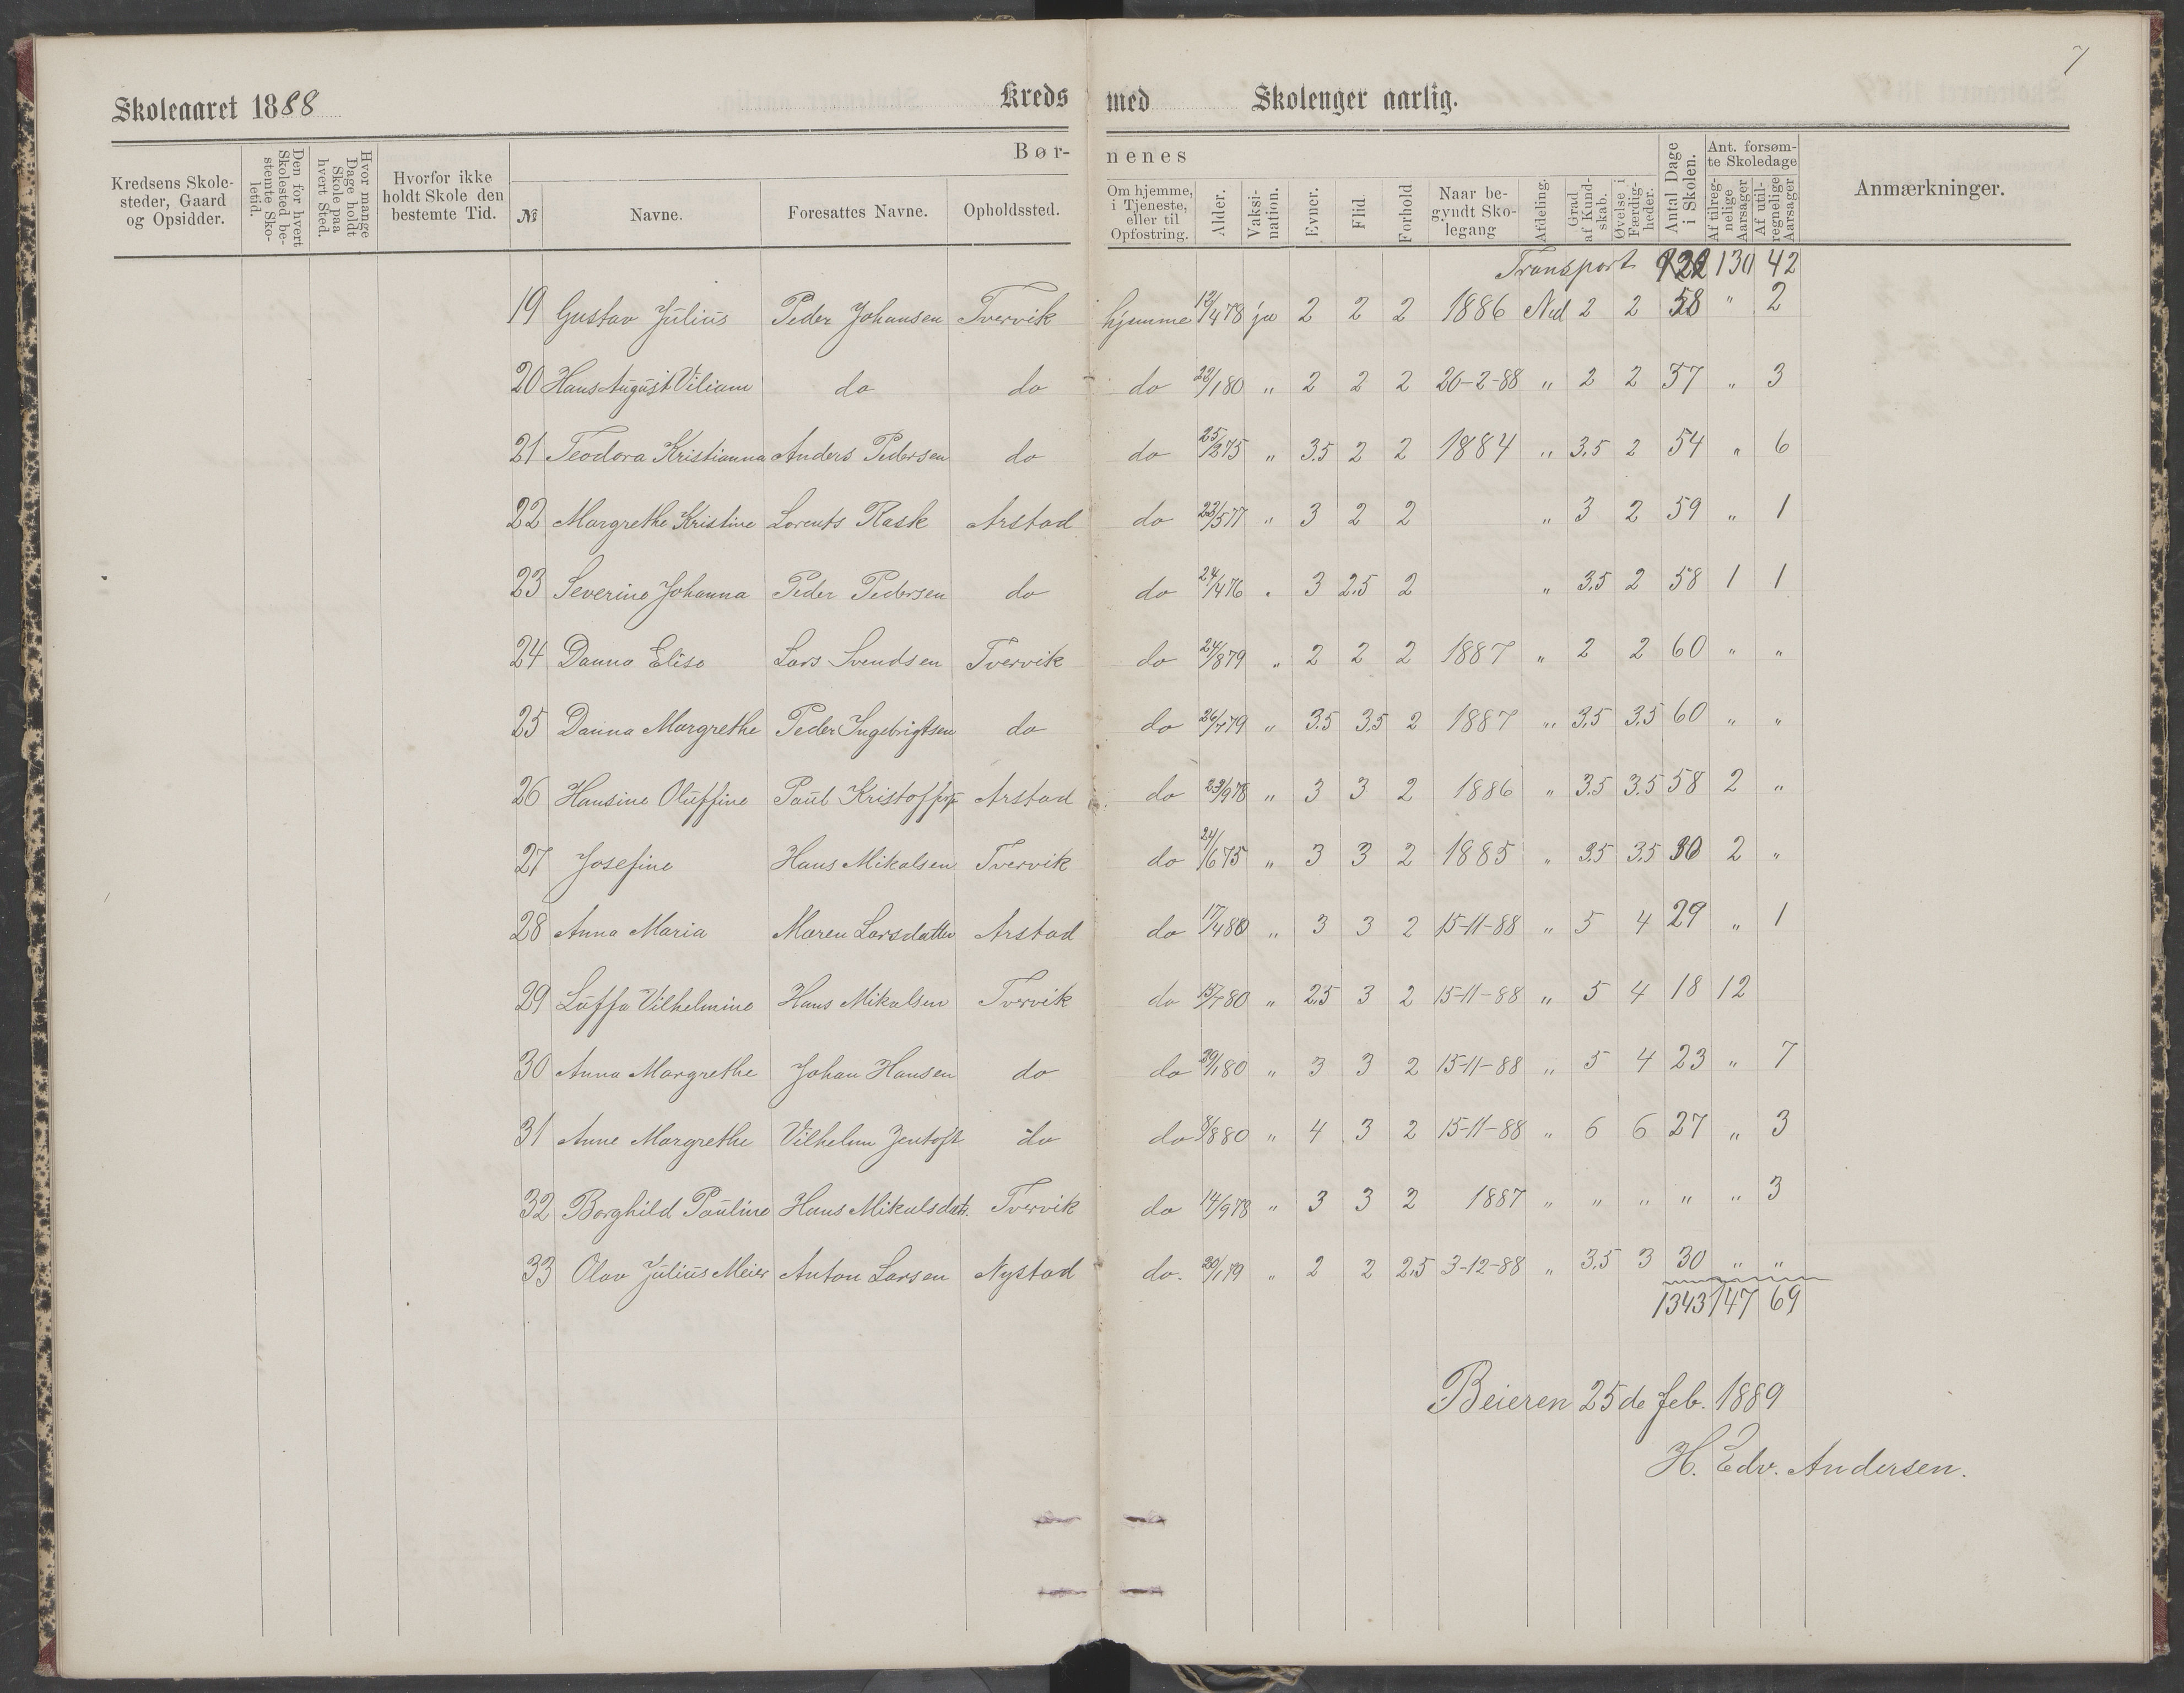 7
Skoleaaret 1888 Kreds med Skolenger aarlig.
Kredsens Skolesteder, Gaard og Opsidder.
Den for hvert Skolested bestemte Skoletid.
Hvor mange Dage holdt Skole paa hvert Sted.
Hvorfor ikke holdt Skole den bestemte Tid.
Børnenes
№ Navne. Foresattes Navne. Opholdssted. Om hjemme, i Tjeneste, eller til Opfostring. Alder. Vaksination. Evner. Flid Forhold Naar begyndt Skolegang Afdeling. Grad af Kundskab. Øvelse i Færdigheder. Antal Dage i Skolen. Ant. forsømte Skoledage Af tilregnelige Aarsager Af utilregnelige Aarsager Anmærkninger.
Transport 130 42
19 Gustav Julius Peder Johansen Tvervik hjemme 12/4 78 ja 2 2 2 1886 Ned 2 2 58 " 2
20 Hans August Viliam do do do 22/1 80 " 2 2 2 20-2-88 " 2 2 57 " 3
21 Teodora Kristianna Anders Pedersen do do 25/2 75 " 3.5 2 2 1884 " 3,5 2 54 " 6
22 Margrethe Kristine Lorents Rask Arstad do 23/5 77 " 3 2 2 " 3 2 59 " 1
23 Severine Johanna Peder Pedersen do do 24/4 76 " 3 2.5 2 " 3.5 2 58 1 1
24 Danna Elise Lars Svendsen Tvervik do 24/8 79 " 2 2 2 1887 " 2 2 60 " "
25 Danna Margrethe Peder Ingebrigtsen do do 26/7 79 " 3.5 3,5 2 1887 " 3,5 3.5 60 " "
26 Hansine Oluffine Paul Arstad do 23/9 78 " 3 3 2 1886 " 3.5 3.5 58 2 "
27 Josefine Hans Mikalsen Tvervik do 24/6 75 " 3 3 2 1885 " 3.5 3.5 30 2 "
28 Anna Maria Maren Larsdatter Arstad do 17/4 80 " 3 3 2 15-11-88 " 5 4 29 " 1
29 Luffa Vilhelmine Hans Mikalsen Tvervik do 15/7 80 " 2.5 3 2 15-11-88 " 5 4 18 12
30 Anna Margrethe Johan Hansen do do 80 " 3 3 2 15-11-88 " 5 4 23 " 7
31 Anne Margrethe Vilhelm Zentoft do do 8/8 80 " 4 3 2 15-11-88 " 6 6 27 " 3
32 Borghild Pauline Hans Mikalsdatt. Tvervik do 14/9 78 " 3 3 2 1887 " " " " " 3
33 Olav Julius Meier Anton Larsen Nystad do. 20/1 79 " 2 2 2,5 3-12-88 " 3.5 3 30 " "
1343 147 69
Beieren 25de feb. 1889
H. Edv. Andersen.